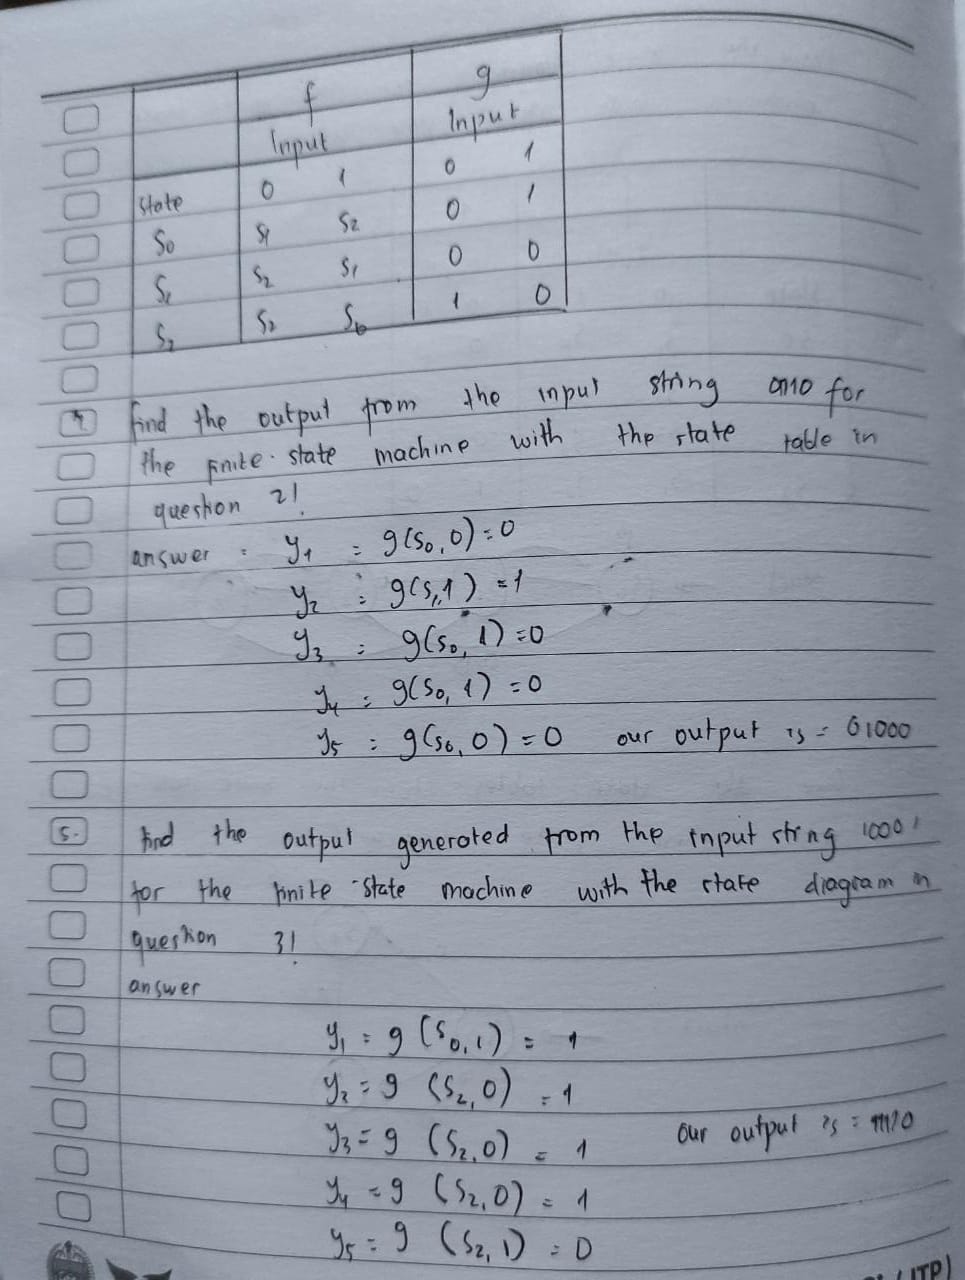 f g
Input Input
State 0 1 0 1
S0 S1 S2 0 1
S1 S2 S1 0 0
S2 S2 S0 1 0
4. find the output from the input string 01110 for
the finite-state machine with the state table in
question 2!
answer : y1 = g(s0, 0) = 0
y2 = g(s1, 1) = 1
y3 = g(s0, 1) = 0
y4 = g(s0, 1) = 0
y5 = g(s0, 0) = 0 our output is = 01000
5. find the output generated from the input string 10001
for the finite-state machine with the state diagram in
question 3!
answer
y1 = g (s0, 1) = 1
y2 = g (s2, 0) = 1
y3 = g (s2, 0) = 1 our output is = 11110
y4 = g (s2, 0) = 1
y5 = g (s2, 1) = 0
(ITP)